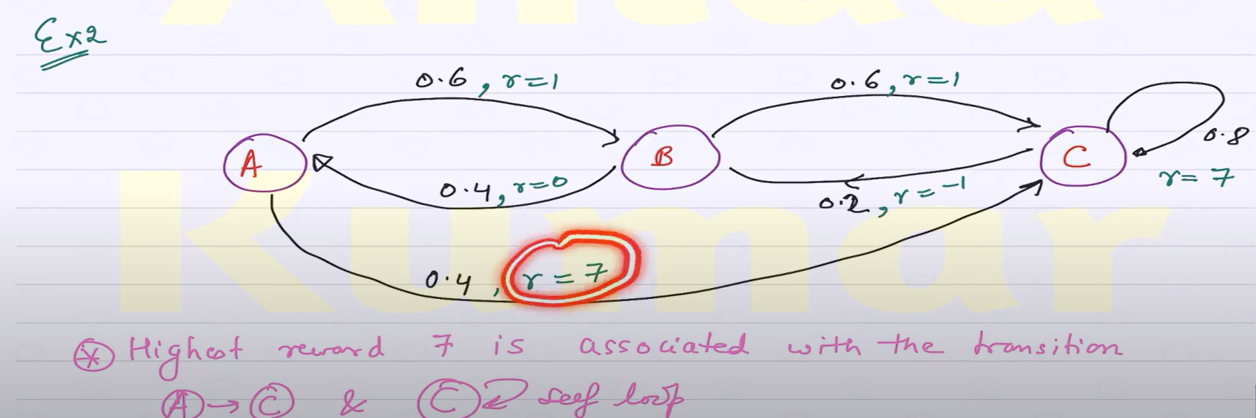 Ex2
0.6, r=1
0.6, r=1
A
B
C
0.8
r=7
0.4, r=0
0.2, r=-1
0.4, r=7
* Highest reward 7 is associated with the transition
A→C & C self loop
Kumar